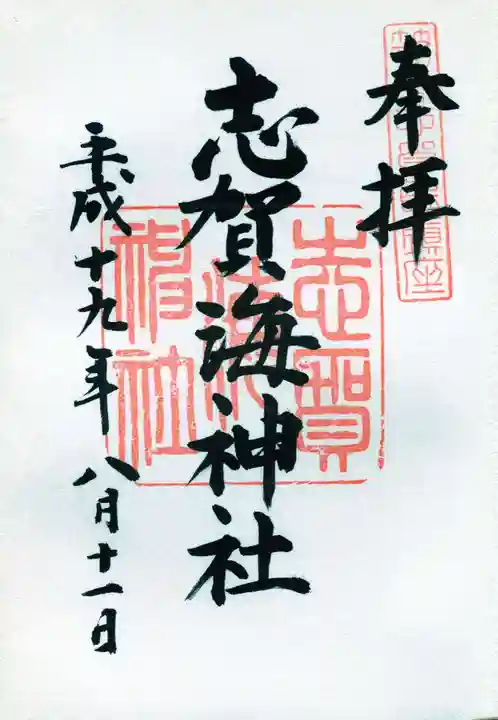 奉拝
志賀海神社
平成十九年八月十一日
志賀海神社